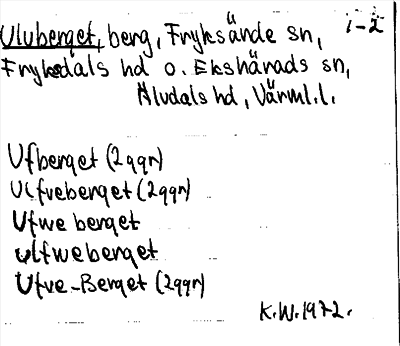 Uluberget, berg, Fryksände sn, i-2
Fryksdals hd o. Ekshärads sn,
Älvdals hd, Värml.l.
Ufberget (2ggr)
Ulfveberget (2ggr)
Ufwe berget
ulfweberget
Ufve-Berget (2ggr)
K.W.1972.